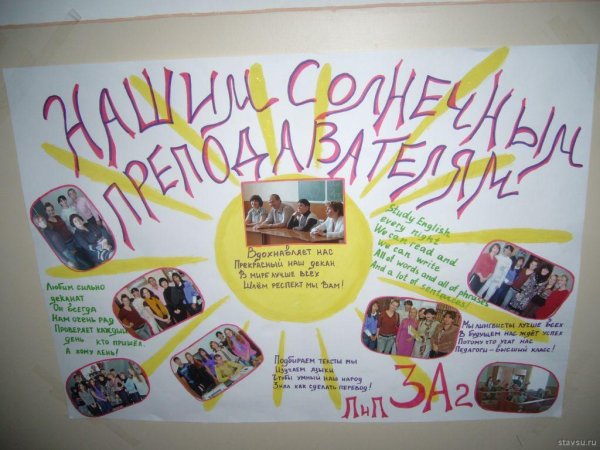 НАШИМ СОЛНЕЧНЫМ
ПРЕПОДАВАТЕЛЯМ
Вдохнавляет нас
Прекрасный наш декан
В мире лучше всех
Шлём респект мы Вам!
Study English
every night
We can read and
we can write
All of words and all of phrases
And a lot of sentences!
Любим сильно
деканат
Он всегда
Нам очень рад
Проверяет каждый
день кто пришёл.
А кому лень!
Подбираем тексты мы
Изучаем языки
Чтобы умный наш народ
Знал как сделать перевод!
Мы лингвисты лучше всех
В будущем нас ждёт успех
Потому что учат нас
Педагоги - высший класс!
ПиП 3А2
stavsu.ru